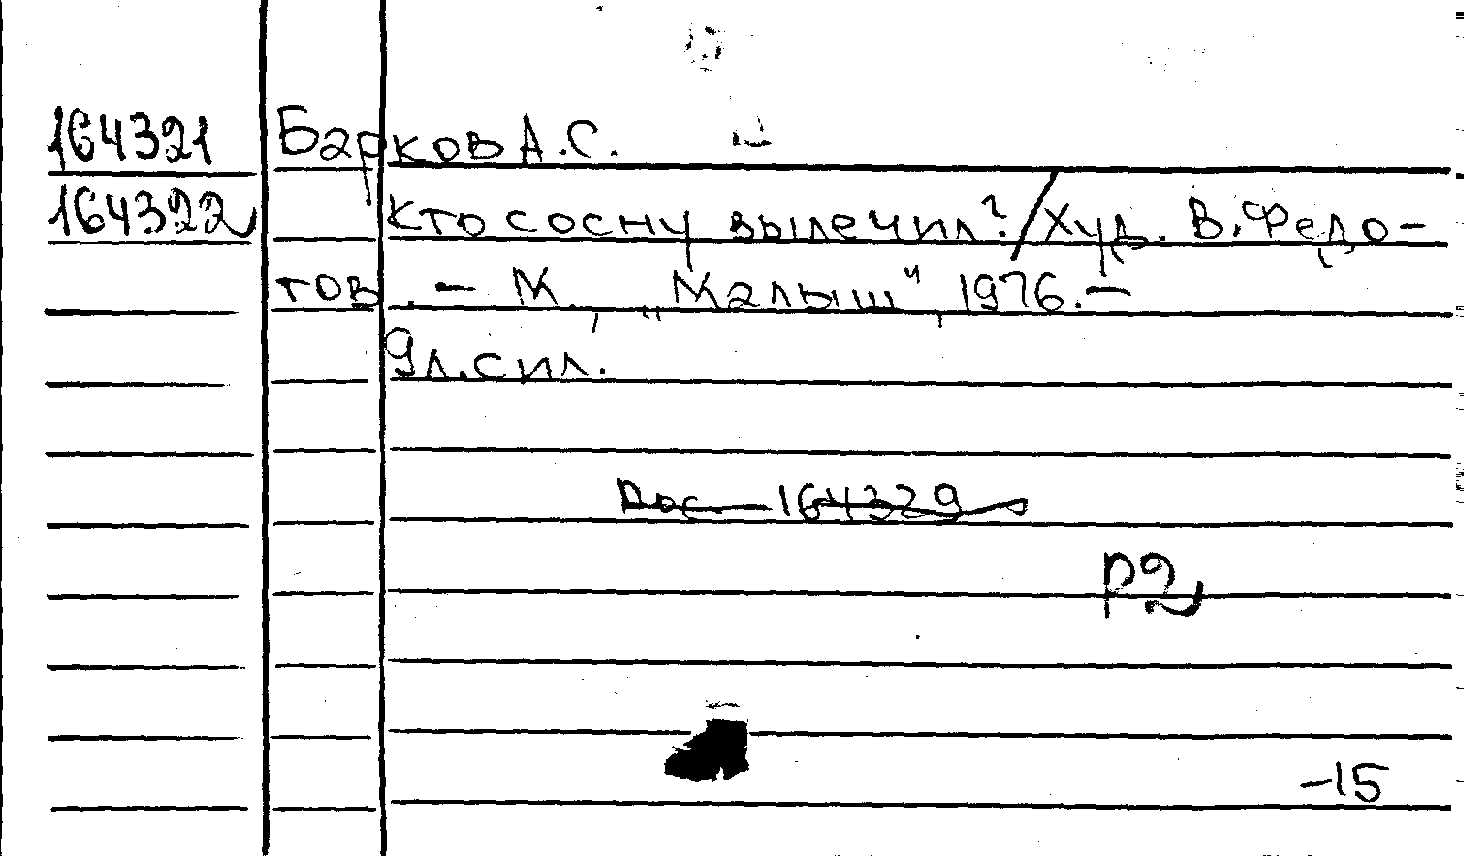 164321 Барков А.С.
164322 Кто сосну вылечил?/Худ. В. Федо-
тов. - М., „Малыш", 1976. -
9л. с ил.
Рос - 164329
Р2
-15